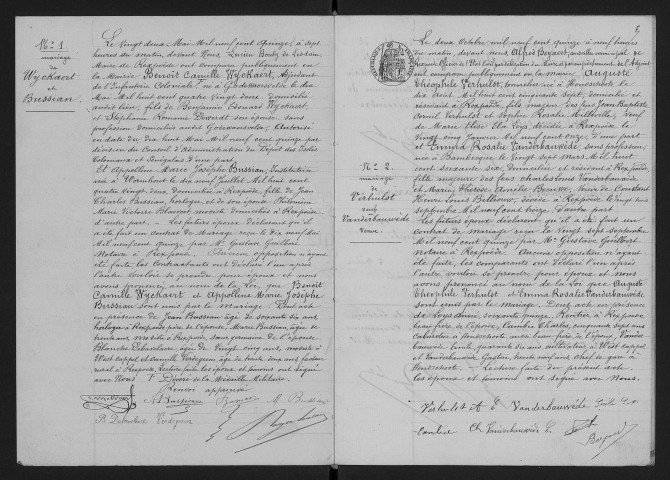 N° 1
mariage
de
Wyckaert
et
Bussian
Le vingt deux Mai Mil neuf cent Quinze, à sept
heures du matin, devant Nous Lucien
Maire de Rexpoëde ont comparu publiquement en
la Mairie Benoît Camille Wyckaert, Adjudant
de l'Infanterie Coloniale né à Godewaersvelde le dix
Mai Mil huit cent quatre vingt domicilié
audit lieu, fils de Benjamin Edouard Wyckaert
et Stéphanie Romanie Devordt son épouse, sans
profession domiciliés audit Godewaersvelde, Autorisé
en date du dix huit Mai Mil neuf cent quinze par
décision du Conseil d'Administration du Dépôt des Isolés
Coloniaux et Sénégalais d'une part.
Et Appolline Marie Josèphe Bussian, Institutrice
née à Wormhoudt le neuf Juillet Mil huit cent
quatre vingt deux domiciliée à Rexpoëde, fille de Jean
Charles Bussian, horloger, et de son épouse Philomène
Marie Victoire Blavoet domiciliés à Rexpoëde
d'autre part. Les futurs époux déclarent qu'il
a été fait un contrat de Mariage reçu le dix neuf Mai
Mil neuf cent quinze par Me Gustave Guilbert
Notaire à Rexpoëde. Aucune opposition n'ayant
été faite, les contractants ont déclaré l'un après
l'autre vouloir se prendre pour époux et nous
avons prononcé au nom de la Loi, que Benoît
Camille Wyckaert et Appolline Marie Josèphe
Bussian sont unis par le mariage. Dont acte
en présence de Jean Bussian âgé de soixante six ans,
horloger à Rexpoëde père de l'épouse, Marie Bussian, âgée de
trente ans, modiste à Rexpoëde, sœur germaine de l'épouse,
Blanche Debandere, âgée de vingt cinq ans, modiste à
West cappel et Camille Verdegeun âgé de trente deux ans facteur
rural à Rexpoëde. Lecture faite les époux et témoins ont signé
avec Nous
de la Médaille Militaire.
Renvoi approuvé
M. Bussian
B. Debandere Verdegeun
5
N° 2.
mariage
de
Verhulst
et
Vanderbauwède
Veuve
Le deux Octobre Mil neuf cent quinze à neuf heures
du matin, devant nous Alfred Bogaert, conseiller municipal de
Auguste
Théophile Verhulst, né à Hondschoote le
Août Mil huit cent cinquante sept, domicilié et
résidant à Rexpoëde, fils majeur des feus Jean Baptiste
Cornil Verhulst et Sophie Millville, Veuf
de Marie Elise Eva Loys décédée à Rexpoëde le
Vingt cinq Janvier Mil neuf cent onze d'une part
et Emma Rosalie Vanderbauwède, sans profession,
née à Bambecque le Vingt sept Mars Mil huit
cent soixante six, domiciliée et résidant à Rexpoëde,
fille majeure des feus Charles Louis Vanderbauwède
et Marie Thérèse Amélie Beuwe, Veuve de Constant
Henri Louis décédé à Rexpoëde le vingt trois
septembre Mil neuf cent treize, d'autre part.
Les futurs époux déclarent qu'il a été fait un
contrat de mariage reçu le vingt sept septembre
Mil neuf cent quinze par Me Gustave Guilbert
notaire à Rexpoëde. Aucune opposition n'ayant
été faite, les comparants ont déclaré l'un après
l'autre vouloir se prendre pour époux et nous
avons prononcé au nom de la Loi que Auguste
Théophile Verhulst et Emma Rosalie Vanderbauwède
sont unis par le mariage. Dont acte en présence
de Loys soixante quinze, Rentier à Rexpoëde
beau père de l'époux, Cambie Charles, cinquante sept ans
cabaretier à Hondschoote, aussi beau frère de l'époux, Vanderbauwède
Emile, quarante six ans cultivateur à West cappel
et Vanderbauwède Gaston, trente neuf ans chef de gare à
Hondschoote. Lecture faite du présent acte
les époux et témoins ont signé avec Nous.
Verhulst A E Vanderbauwède
Cambie Ch Vanderbauwède E.
Bogaert